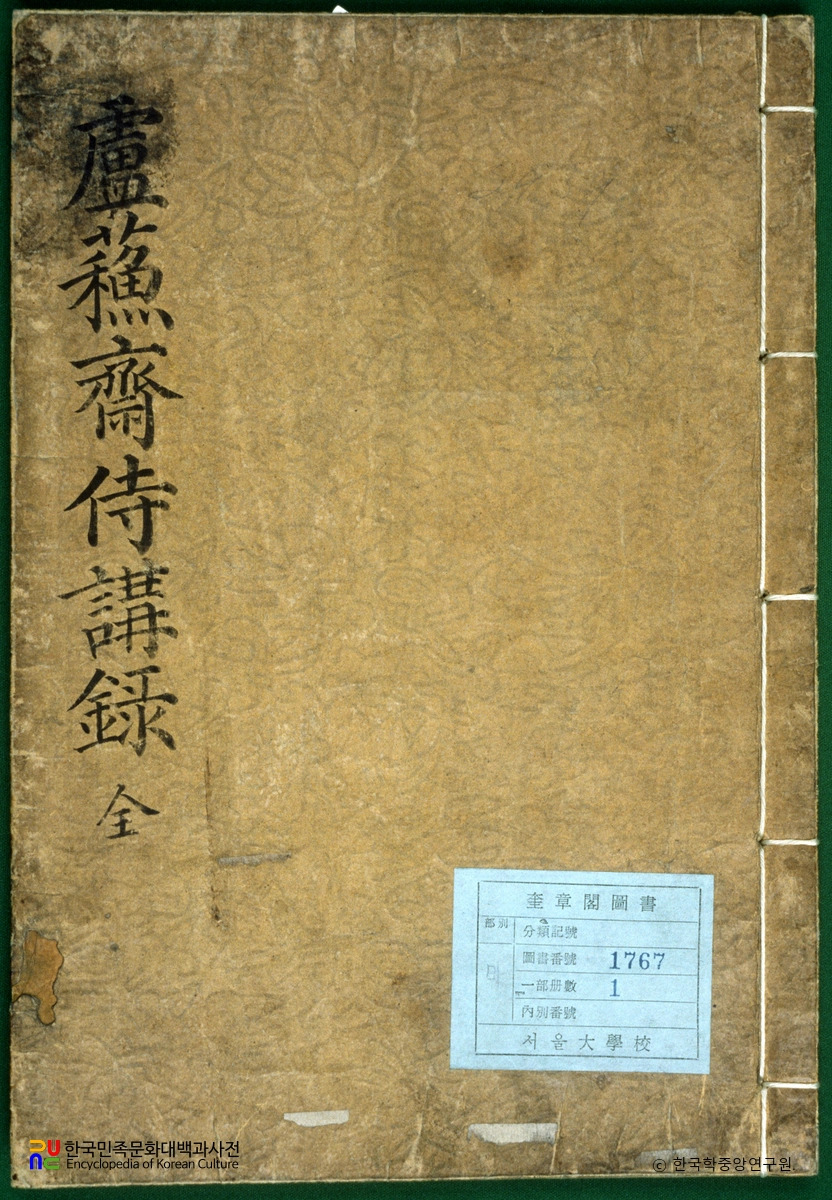 盧蘓齋侍講録 全
奎章閣圖書
部別
分類記號
圖書番號 1767
一部册數 1
內別番號
서울大學校
한국민족문화대백과사전
Encyclopedia of Korean Culture
© 한국학중앙연구원